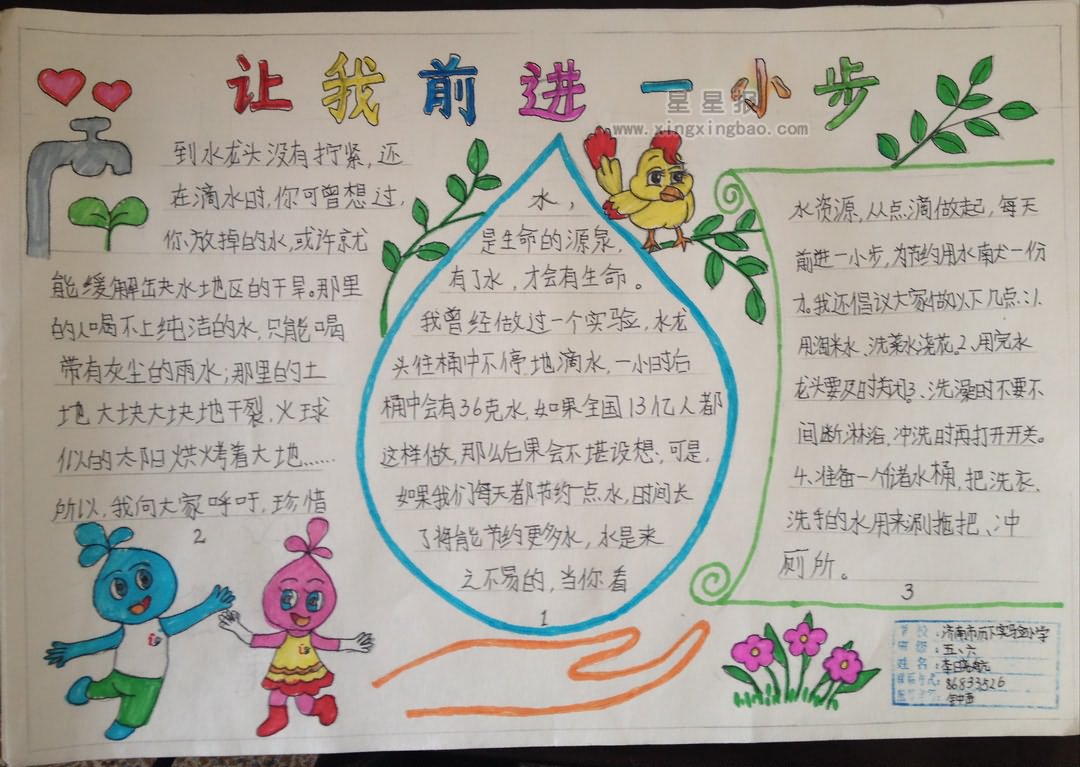 让我前进一小步
星星报
www.xingxingbao.com
水，
是生命的源泉，
有了水，才会有生命。
我曾经做过一个实验，水龙
头往桶中不停地滴水，一小时后
桶中会有36克水，如果全国13亿人都
这样做，那么后果会不堪设想，可是，
如果我们每天都节约一点水，时间长
了将能节约更多水，水是来
之不易的，当你看
1
到水龙头没有拧紧，还
在滴水时，你可曾想过，
你放掉的水，或许就
能缓解缺水地区的干旱。那里
的人喝不上纯洁的水，只能喝
带有灰尘的雨水；那里的土
地大块大块地干裂，火球
似的太阳烘烤着大地……
所以，我向大家呼吁，珍惜
2
水资源，从点滴做起，每天
前进一小步，为节约用水献一份
力。我还倡议大家做以下几点：1、
用淘米水、洗菜水浇花。2、用完水
龙头要及时关闭3、洗澡时不要不
间断淋浴，冲洗时再打开开关。
4、准备一个储水桶，把洗衣、
洗手的水用来涮拖把、冲
厕所。
3
学校：济南市历下实验小学
班级：五、六
姓名：李
86833526